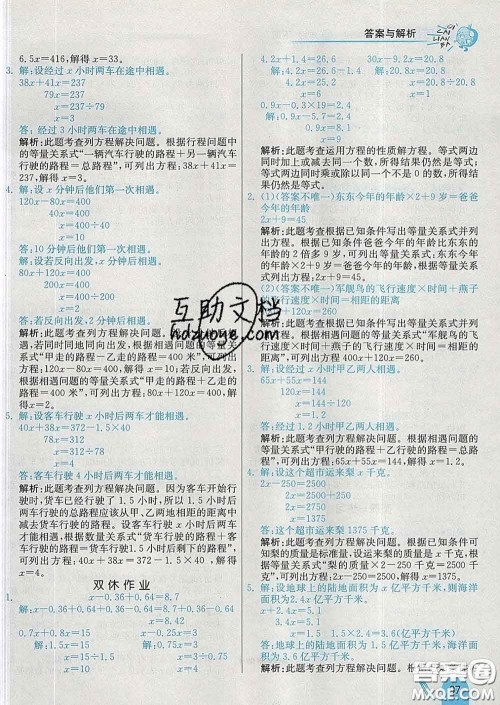 答案与解析
6.5x=416,解得 x=33。
3. 解:设经过 x 小时两车在途中相遇。
38x+41x=237
79x=237
x=237÷79
x=3
答:经过 3 小时两车在途中相遇。
解析:此题考查列方程解决问题。根据行程问题中
的等量关系式“一辆汽车行驶的路程+另一辆汽车
行驶的路程=总路程”,可列出方程;38x+41x=
237,解得 x=3。
4. 解:设 x 分钟后他们第一次相遇。
120x-80x=400
40x=400
x=10
答:10 分钟后他们第一次相遇。
解:设若反向出发,x 分钟相遇。
120x+80x=400
200x=400
x=400÷200
x=2
答:若反向出发,2 分钟相遇。
解析:此题考查列方程解决问题。
若同时同地同向出发
关系式“甲走的路程-乙走的路程=400 米”,可列
出方程:120x-80x=400,解得 x=10。若反向出发,
根据相遇问题的等量关系式“甲走的路程+乙走的
路程=400 米”,可列出方程:120x+80x=400,解
得 x=2。
5. 解:设客车行驶 x 小时后两车才能相遇。
40x+38x=372-1.5×40
78x=312
x=312÷78
x=4
答:客车行驶 4 小时后两车才能相遇。
解析:此题考查列方程解决问题。因为客车开始行
驶时,货车已经行驶了 1.5 小时,所以 1.5 小时后
行驶的总路程应该从甲、乙两地相距的总距离中
减去货车行驶的路程。设客车行驶 x 小时后两车
才能相遇,根据数量关系式“货车行驶的路程+客车
行驶的路程=货车行驶 1.5 小时后剩下的路程”,
可列出方程:40x+38x=372-1.5×40,解得 x=
4。
双休作业
1.
x-0.36+0.64=8.7
解:x-0.36+0.64=8.7
x-0.36+0.64-0.64+0.36=8.7-0.64+0.36
x=8.42
0.7x+0.8x=15
解:1.5x=15
x=15÷1.5
x=10
4x-x=45
解:3x=45
x=45÷3
x=15
4.2x-1.4x=28
解:2.8x=28
x=28÷2.8
x=10
解析:此题考查运用方程的性质解方程。等式两边
同时加上或减去同一个数,所得结果仍然是等式;
等式两边同时乘或除以同一个不为 0 的数,所得
结果仍然是等式。
2. (1)(答案不唯一)东东今年的年龄×2+9 岁=爸爸
今年的年龄
2x+9=45
解析:此题考查根据已知条件写出等量关系式并列
出方程。根据已知条件爸爸今年的年龄比东东的
年龄的 2 倍多 9 岁,可列出方程:2x+9=45。
(2)(答案不唯一)军舰鸟的飞行速度×时间+燕子
的飞行速度×时间=相距的距离
400x+120x=260
解析:此题考查根据已知条件写出等量关系式并列
出方程。根据等量关系式“军舰鸟的飞行速度×时
间+燕子的飞行速度×时间=相距的距离”,可列
出方程:400x+120x=260。
3. 解:设经过 x 小时甲乙两人相遇。
65x+55x=144
120x=144
x=144÷120
x=1.2
答:经过 1.2 小时甲乙两人相遇。
解析:此题考查列方程解决问题。根据相遇问题的
等量关系式“甲行驶的路程+乙行驶的路程=总路
程”,可列出方程:65x+55x=144,解得 x=1.2。
4. 解:设这个超市运来梨 x 千克。
2x-250=2500
2x=2500+250
2x=2750
x=1375
答:这个超市运来梨 1375 千克。
5. 解:设地球上的陆地面积为 x 亿平方千米,则海洋
面积为 2.4x 亿平方千米。
x+2.4x=5.1
x=1.5
答:地球上的陆地面积为 1.5 亿平方千米,海洋
面积为 3.6 亿平方千米。
解析:此题考查列方程解决问题。根据等量关系式
互助文档
hdzuoye.com
答案圈
MXQE.COM